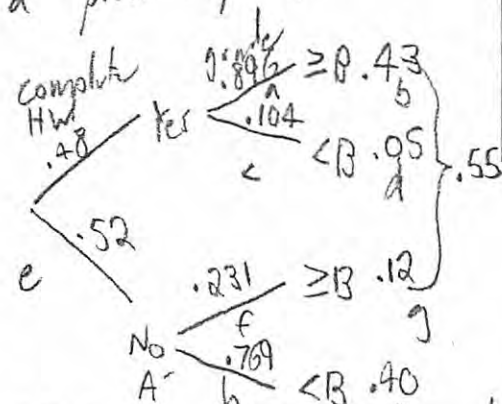 grade
complete
HW
.48
Yes
.896
a
≥B .43
b
.104
c
<B .05
d
.55
.52
e
.231
f
≥B .12
g
No
A
.769
h
<B .40